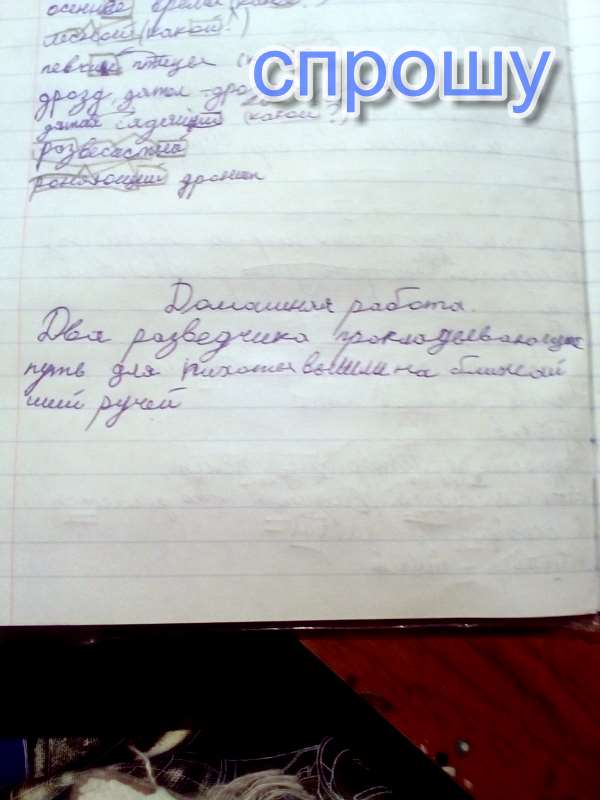 осеннее время (какое?)
лесной (какой?)
певчие птицы
спрошу
дрозд, дятел - дро
дятел сидящий (какой?)
развесистые
домашняя работа.
Два разведчика прокладывающие
путь для пихоты вышли на ближай
ший ручей